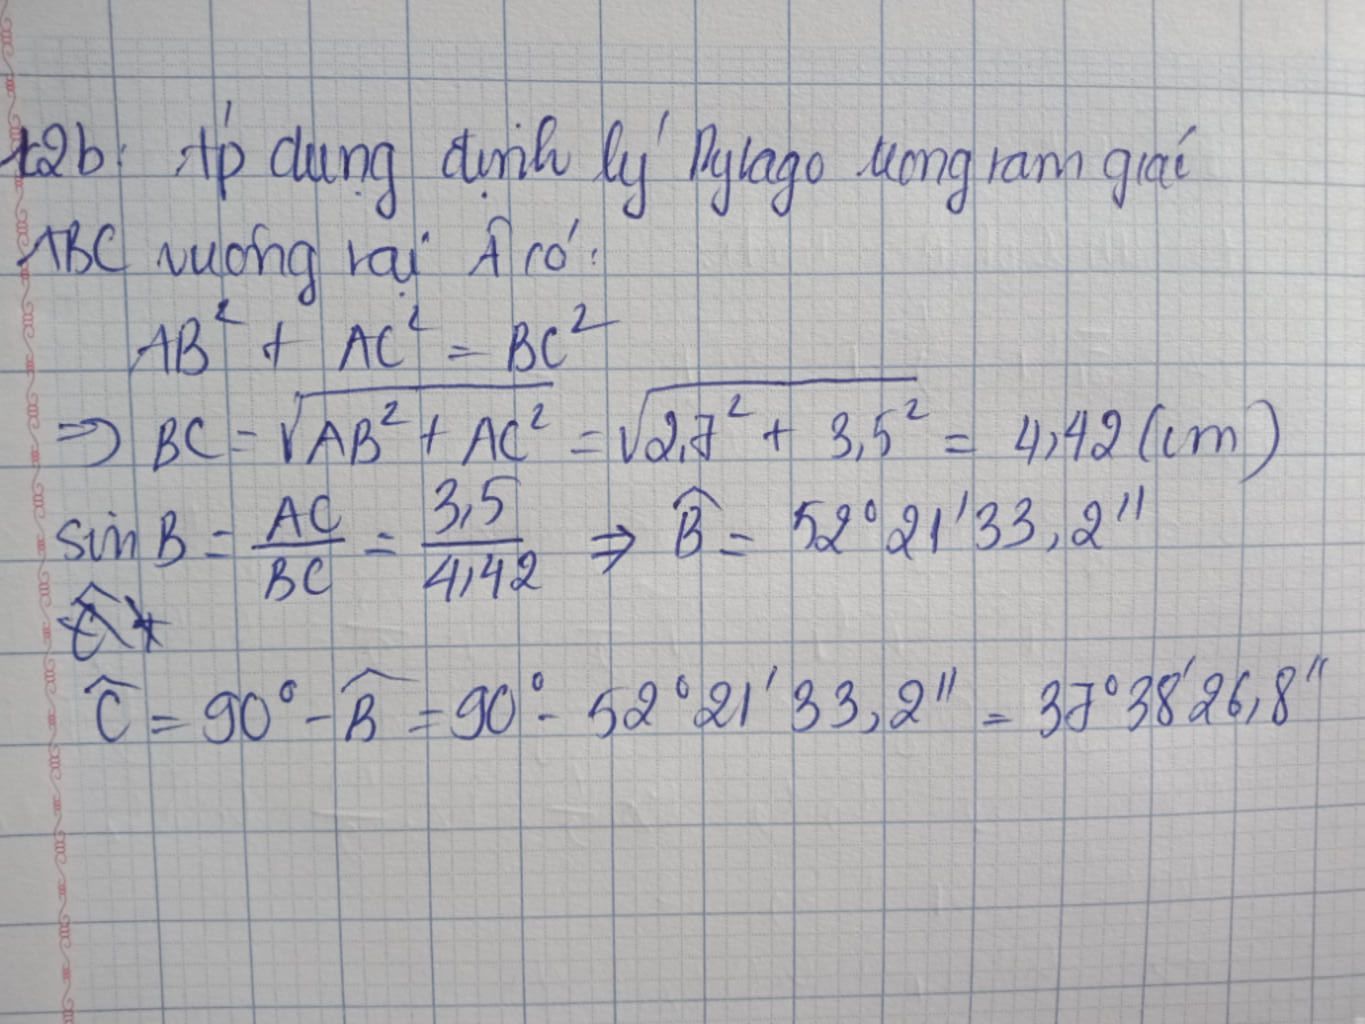 t2b: Áp dụng định lý Pytago trong tam giác
ABC vuông tại Â có:
AB² + AC² = BC²
⇒ BC = √(AB² + AC²) = √(2,7² + 3,5²) = 4,42 (cm)
sin B = AC/BC = 3,5/4,42 ⇒ B̂ = 52°21'33,2"
Ĉ = 90° - B̂ = 90° - 52°21'33,2" = 37°38'26,8"